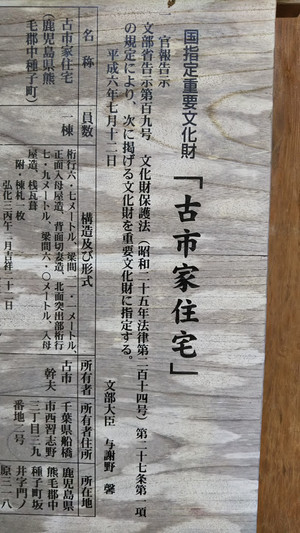 国指定重要文化財
「古市家住宅」
一 官報告示
文部省告示第百九号 文化財保護法(昭和二十五年法律第二百十四号)第二十七条第一項
の規定により、次に掲げる文化財を重要文化財に指定する。
平成六年七月十二日
文部大臣 与謝野 馨
名称
員数
構造及び形式
所有者
所有者住所
所在地
古市家住宅
(鹿児島県熊
毛郡中種子町)
一棟
桁行六・七メートル、梁間
一メートル、
正面入母屋造、背面切妻造、北面突出部桁行
七・九メートル、梁間六・〇メートル、入母
屋造、桟瓦葺
附・棟札 枚
弘化三丙午二月吉祥二十一日
古市
幹夫
千葉県船橋
市西習志野
三丁目三九
番地一号
鹿児島県
熊毛郡中
種子町坂
井字門ノ
原三一八